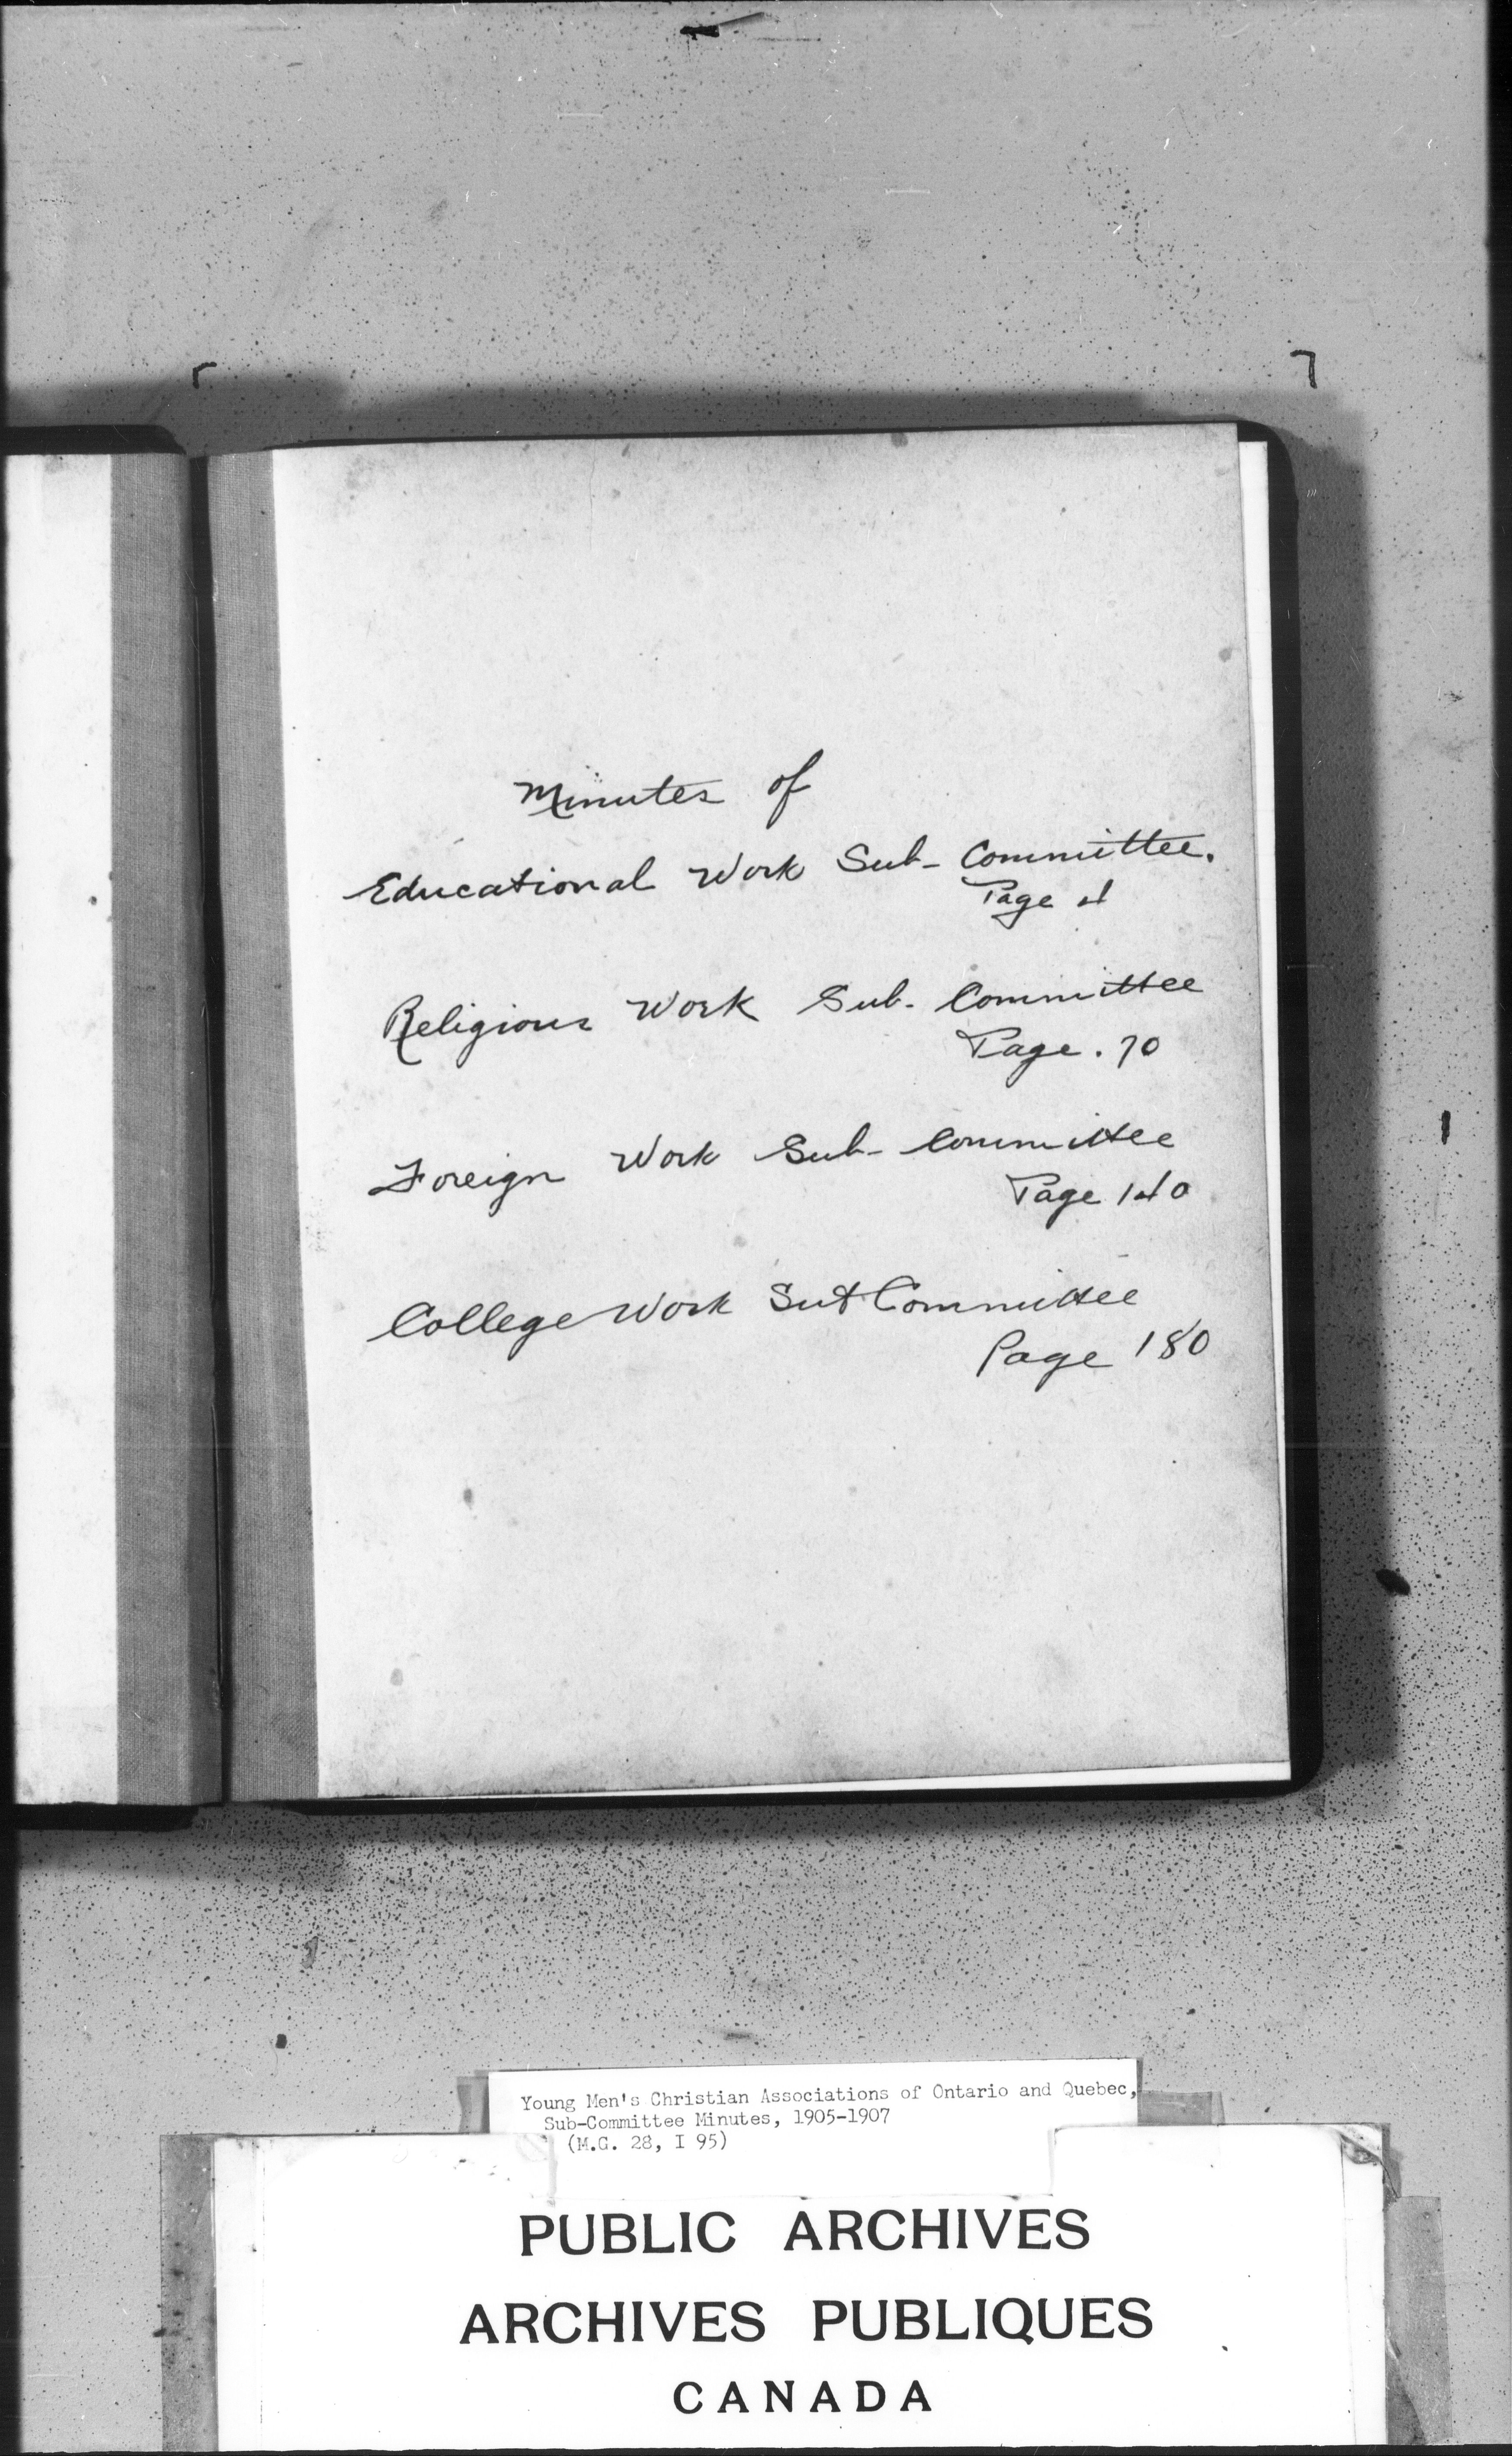 Minutes of
Educational Work Sub-Committee.
Page 4
Religious Work Sub-Committee
Page. 70
Foreign Work Sub-Committee
Page 140
College Work Sub Committee
Page 180
Young Men's Christian Associations of Ontario and Quebec,
Sub-Committee Minutes, 1905-1907
(M.G. 28, I 95)
PUBLIC ARCHIVES
ARCHIVES PUBLIQUES
CANADA